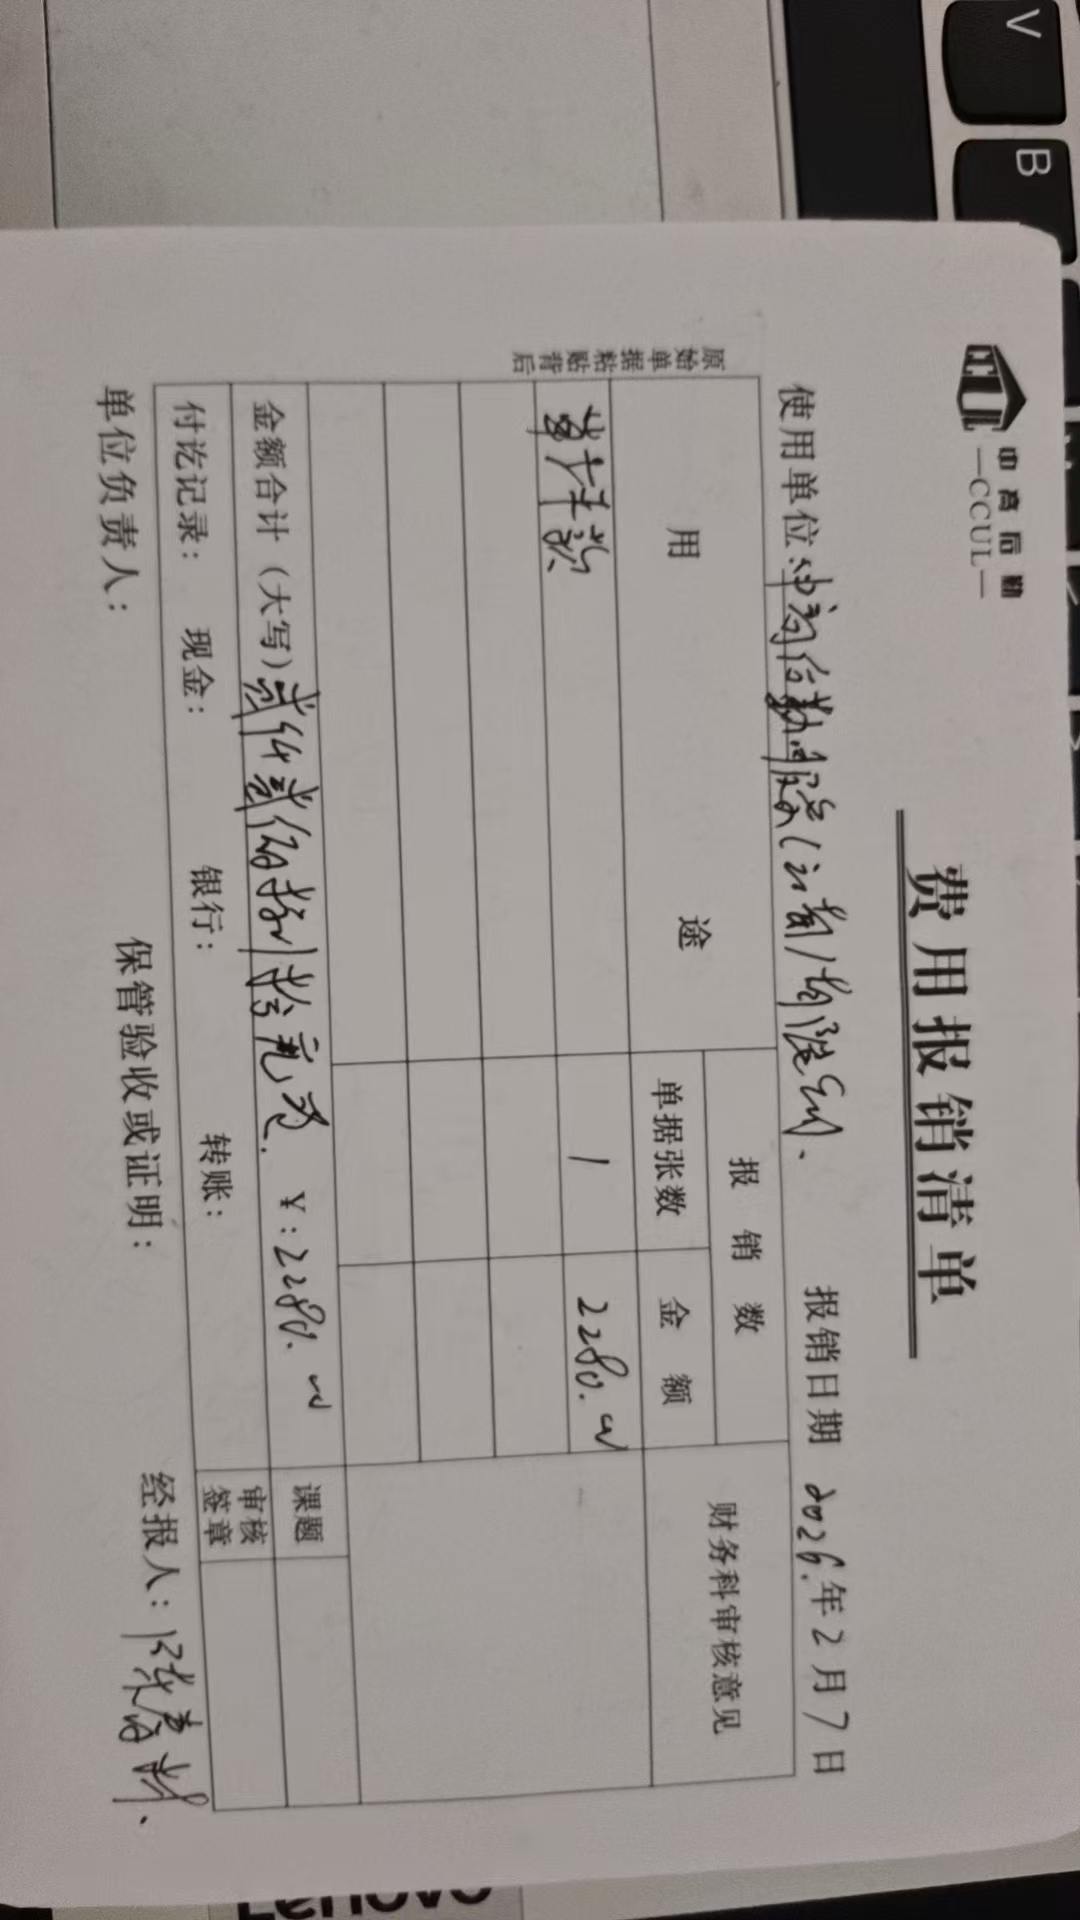 中高后勤
—CCUL—
费用报销清单
使用单位:中高后勤
报销日期 2026.年2月7日
用 途
报 销 数
财务科审核意见
单据张数
金 额
1
2280.00
金额合计(大写)贰仟贰佰捌拾元
¥:2280.00
课题
付讫记录: 现金: 银行: 转账:
审核签章
单位负责人: 保管验收或证明: 经报人:
原始单据粘贴背后
V
B
Lenovo